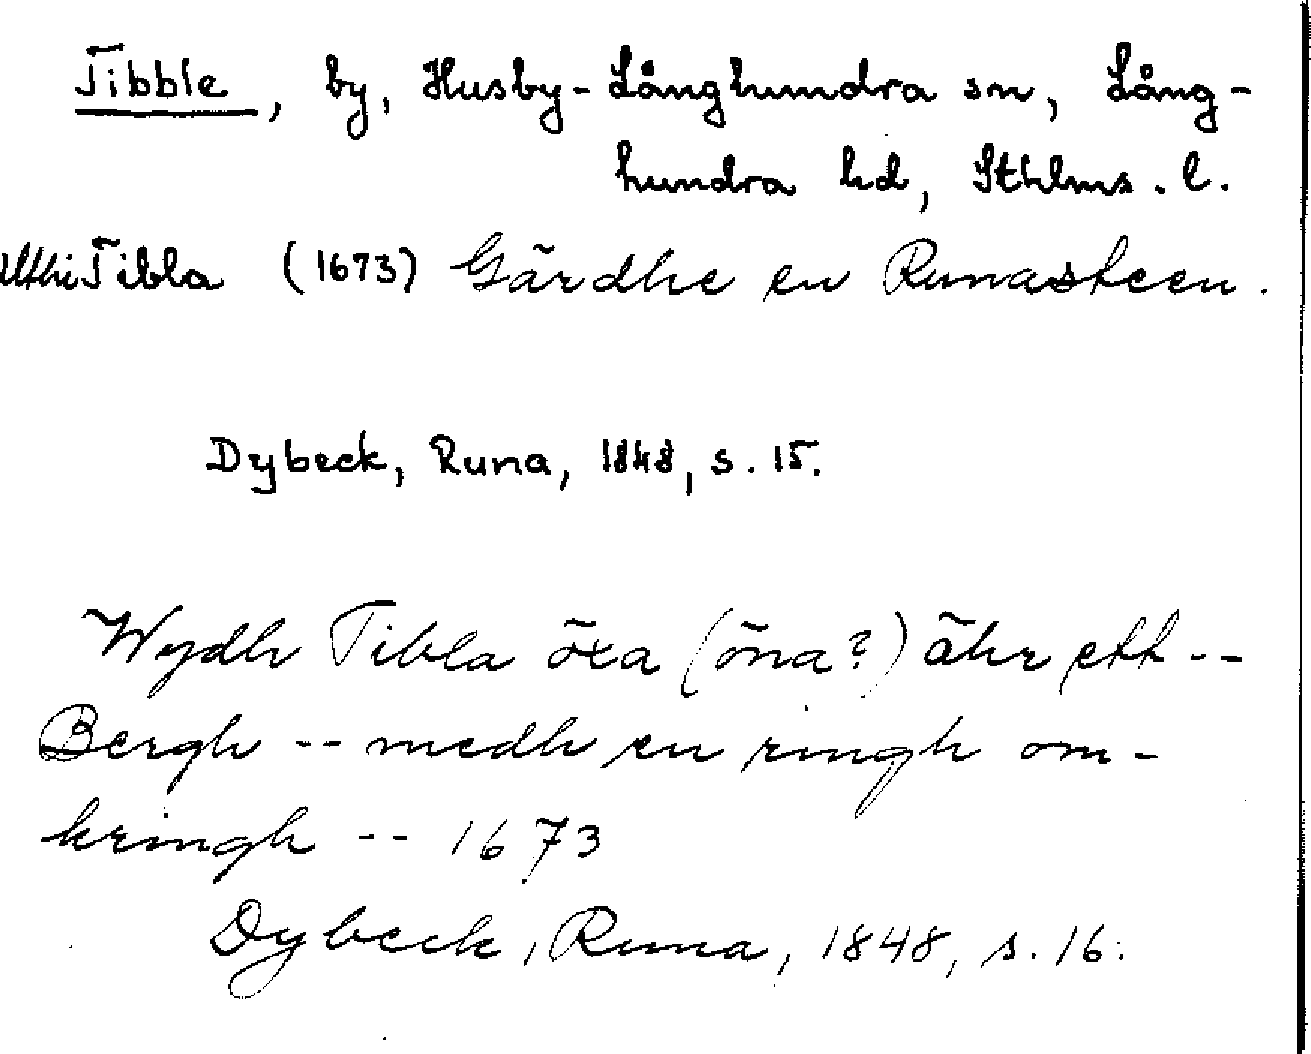 Tibble, by, Husby-Långhundra sn, Lång-
hundra hd, Sthlms. l.
Tibla (1673) Gärdhe en Runasteen.
Dybeck, Runa, 1848, s. 15.
Wydh Tibla öxa (öna?) ähr ett --
Bergh -- medh en ringh om-
kringh -- 1673
Dybeck, Runa, 1848, s. 16.